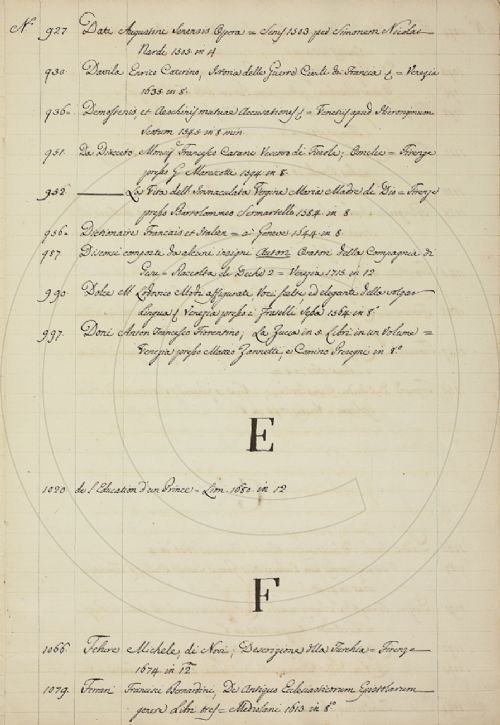 N.° 927. Data Augustini Senensis Opera = Senis 1503 per Simonem Nicolai
Nardi 1503 in 4.
930. Davila Enrico Caterino, Istoria delle Guerre Civili di Francia = Venezia
1638 in 8.
936. Demostenis, et Aeschinis mutuae Accusationes = Venetiis apud Hieronimum
Scotum 1545 in 8 min.
951. Da Diacceto Monsig.r Francesco Catani Vescovo di Fiesole; Omelie = Firenze
presso G. Marescotti in 8.
952 La Vita dell'Immaculata Vergine Maria Madre di Dio = Firenze
presso Bartolommeo Sermartelli 1584 in 8.
956. Dictionaire Francais et Italien = a Geneve 1644 in 8.
987. Discorsi composte da alcuni insigni Autori Oratori della Compagnia di
Gesu = Raccolta di Prediche 2 = Venezia 1713 in 12
990 Dolce M. Lodovico Modi affigurati Voci scelte ed eleganti della volgar
lingua Venezia presso i Fratelli Sessa 1564 in 8.
997. Doni Anton Francesco Fiorentino; La Zucca in 5. Libri in un Volume =
Venezia presso Matteo Zannetti, e Comino Presegni in 8.°
E
1020 de l'Education d'un Prince = 1680. in 12
F
1066 Febure Michele, di Novi; Descrizione della Turchia = Firenze
1674 in 12
1079. Ferrari Francisci Bernardini, De Antiquo Eclesiasticorum Epistolarum
genere Libri tres = Mediolani 1613 in 8.°